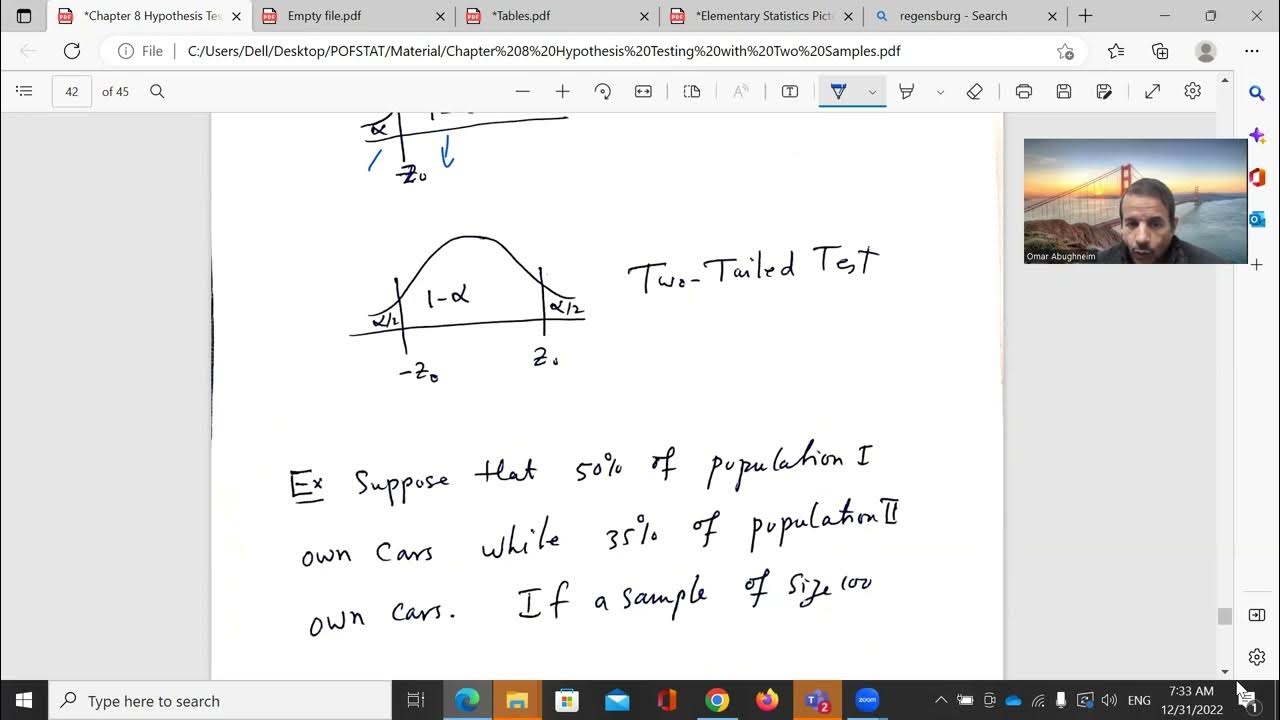 *Chapter 8 Hypothesis Tes
Empty file.pdf
*Tables.pdf
*Elementary Statistics Pict
regensburg - Search
File
C:/Users/Dell/Desktop/POFSTAT/Material/Chapter%208%20Hypothesis%20Testing%20with%20Two%20Samples.pdf
42 of 45
α 1-α
-Z₀
Omar Abughneim
Two-Tailed Test
1-α
α/2 α/2
-Z₀ Z₀
Ex Suppose that 50% of population I
own cars while 35% of population II
own cars. If a sample of size 100
Type here to search
ENG
7:33 AM
12/31/2022
2
zoom
1